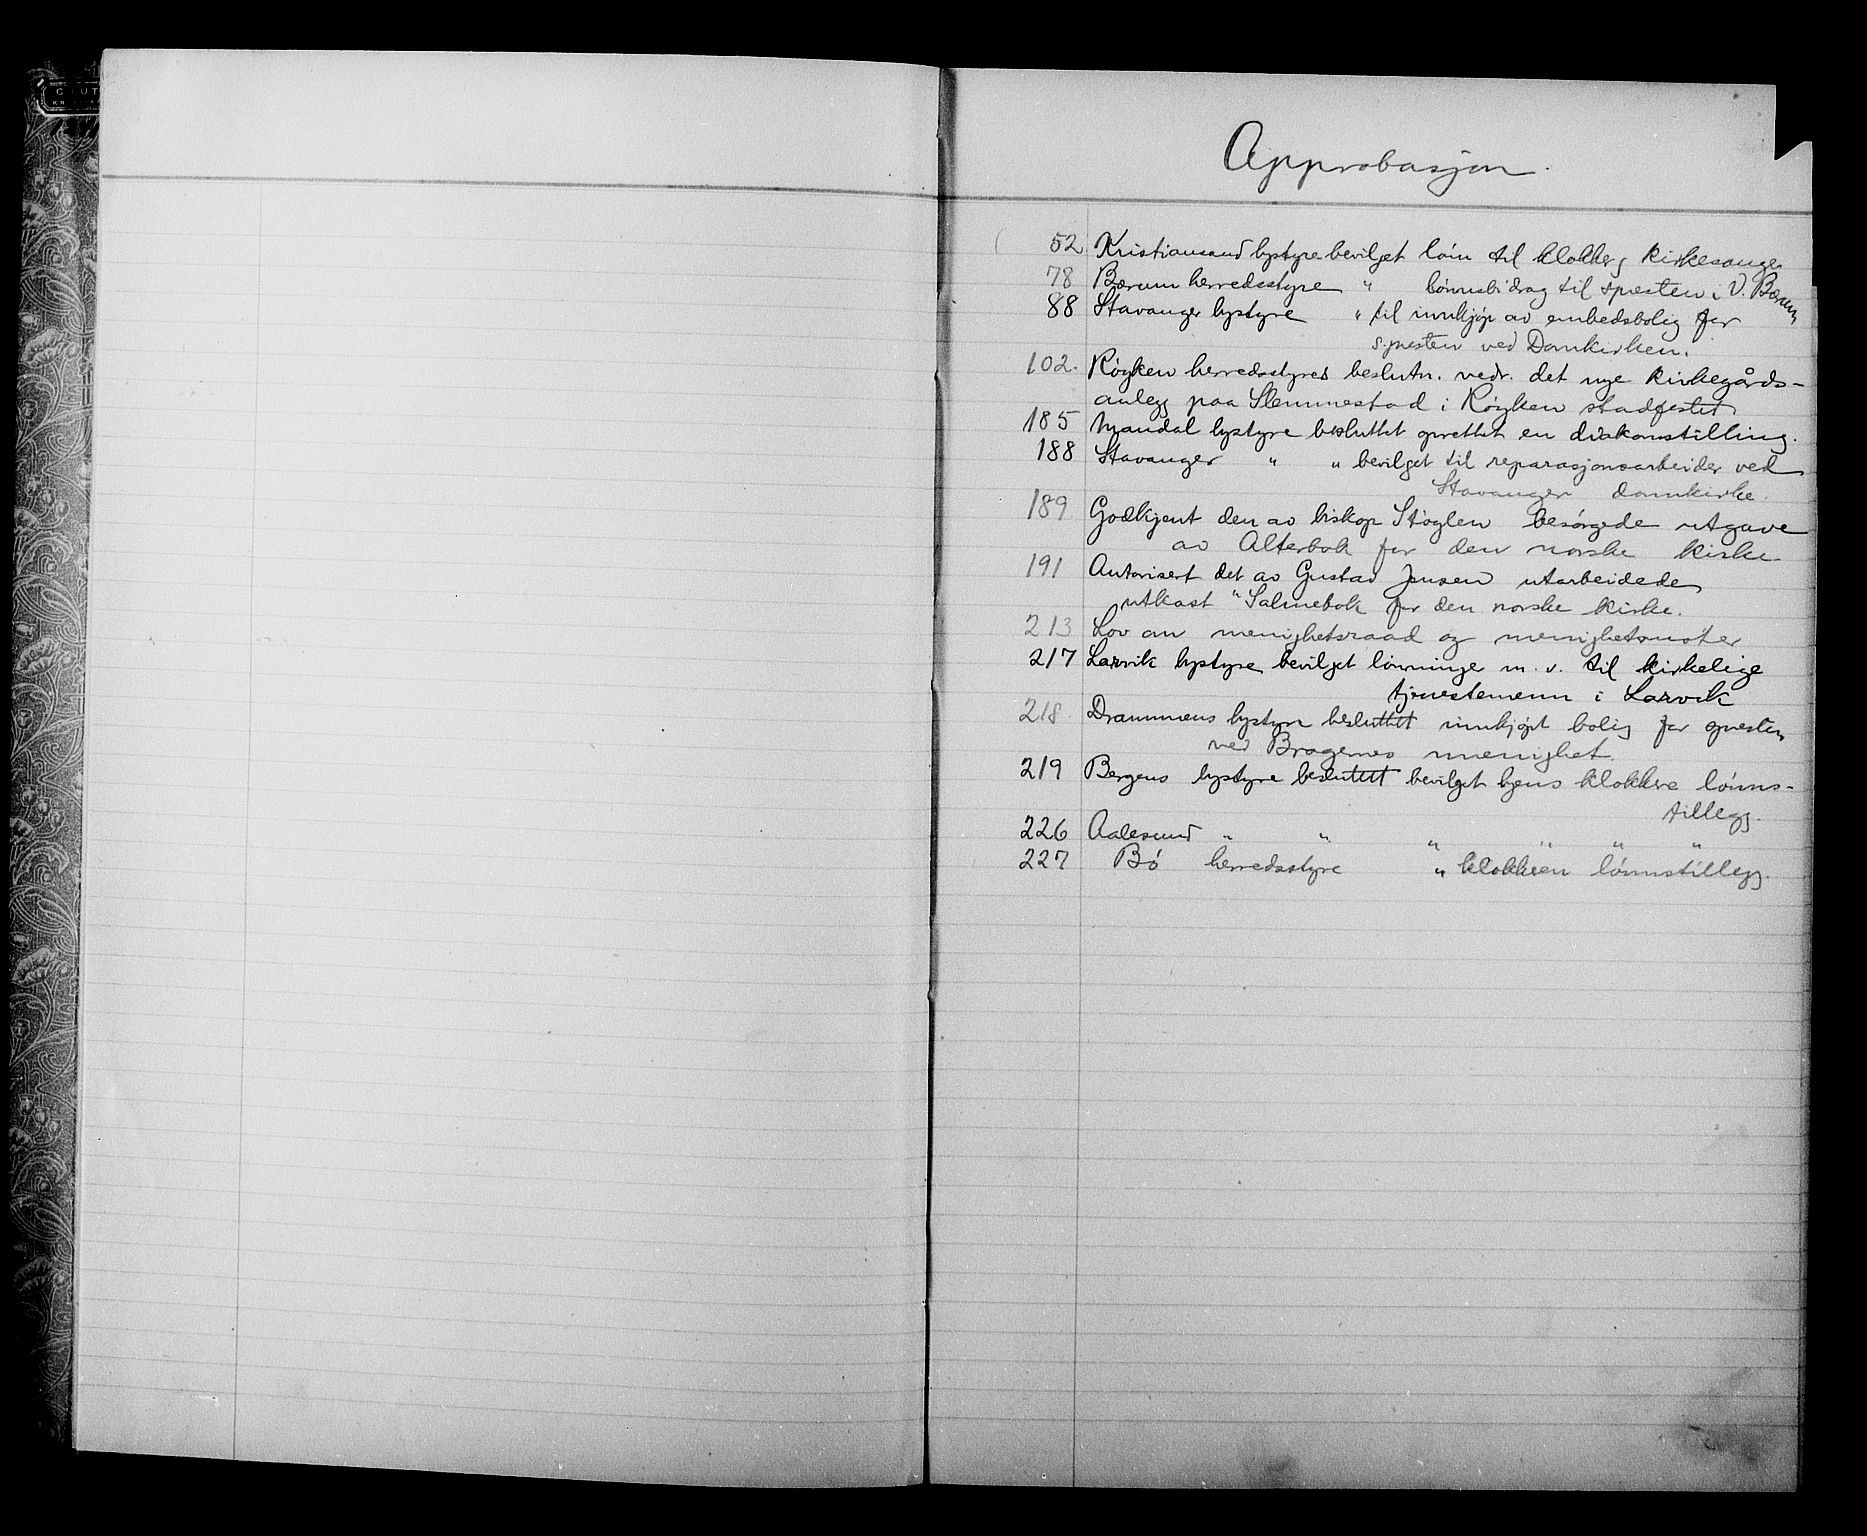 Approbasjon.
52 Kristiansand bystyre bevilget lön til klokker, kirkesanger
78 Bærum herredsstyre " lönnsbidrag til spresten i V. Bærum
88 Stavanger bystyre " til innkjøp av embedsbolig for
s.presten ved Domkirken.
102. Røyken herredsstyres beslutn. vedr. det nye kirkegårds-
anlegg paa Slemmestad i Røyken stadfestet
185 Mandal bystyre besluttet oprettet en diakonstilling.
188 Stavanger " " bevilget til reparasjonsarbeider ved
Stavanger domkirke.
189 Godkjent den av biskop Støylen besörgede utgave
av Alterbok for den norske kirke
191 Autorisert det av Gustav Jensen utarbeidede
utkast "Salmebok for den norske kirke.
213 Lov om menighetsraad og menighetsmöter
217 Larvik bystyre bevilget lönninger m. v. til kirkelige
tjenestemenn i Larvik
218 Drammens bystyre besluttet innkjøpt bolig for spresten
ved Bragernes menighet.
219 Bergens bystyre besluttet bevilget byens klokkere lönns-
tillegg.
226 Aalesund " " " " " "
227 Bö herredsstyre " klokkeren lönnstillegg.